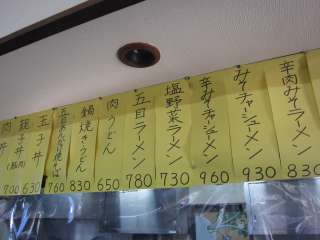 辛肉みそラーメン 830
みそチャーシューメン 930
辛みそチャーシューメン 960
塩野菜ラーメン 730
五目ラーメン 780
肉うどん 650
鍋焼きうどん 830
五目あんかけ焼そば 760
玉子丼 630
親子丼 (鶏肉) 700
肉丼